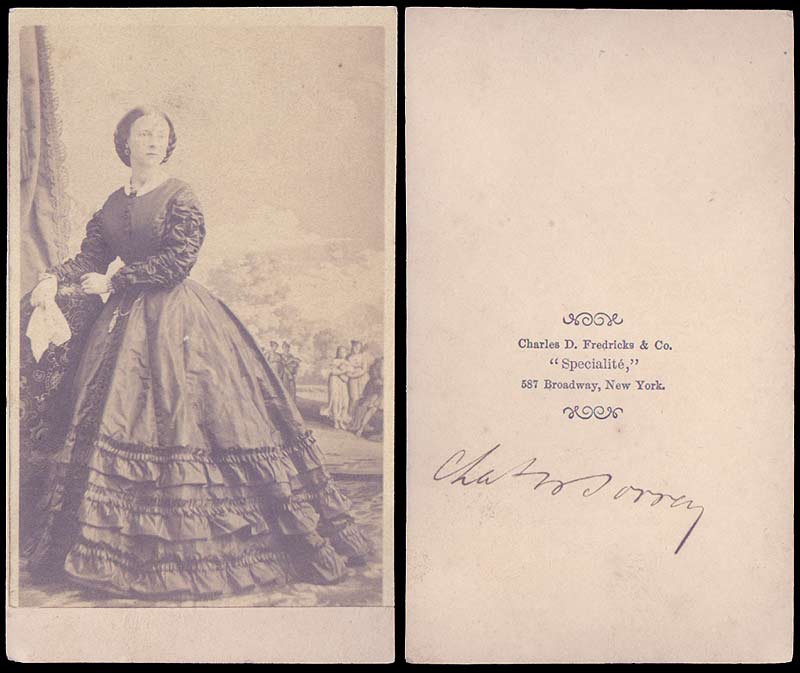 Charles D. Fredricks & Co.
"Specialité,"
587 Broadway, New York.